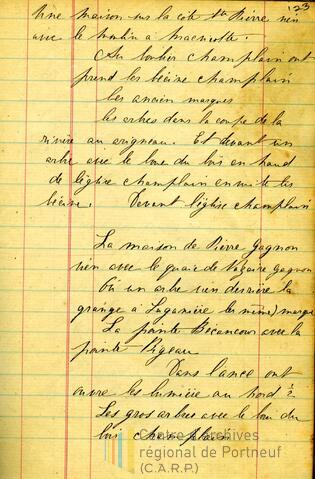 123
Une maison sur la côte Ste Pierre vien
avec le moulin à macnicolle.
Au bouher champlain ont
prend les béùine champlain
les ancien marques
les arbres dans la coupe de la
rivière au origneau. Et devant un
arbre avec le bout du bois en haud
de l'église champlain ensuite les
béùine. Devent l'église champlain
La maison de Pierre Gagnon
vien avec le quai de Nazaire Gagnon
Où un arbre vien derrière la
grange à Laganière les même) marque
La pointe Becancour avec la
pointe Pigeau
Dans l'ance ont
ouvre les lumière au nord ½
Les gros arbres avec le bout du
bois champlain
Centre d'archives
régional de Portneuf
(C.A.R.P.)